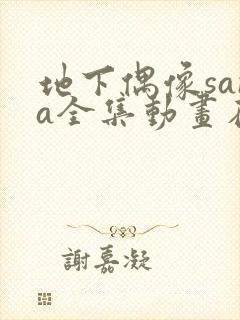 地下偶像sa
a全集動畫
謝嘉凝